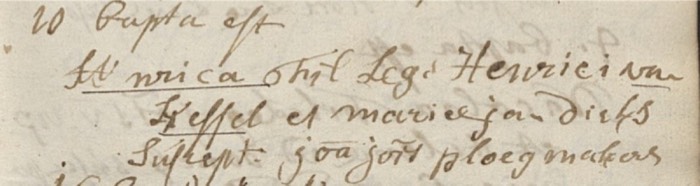 10 bapta est
Henrica fil legi Henrici van
Hessel et mariae jan dirks
Suscept. joa jois ploegmakers